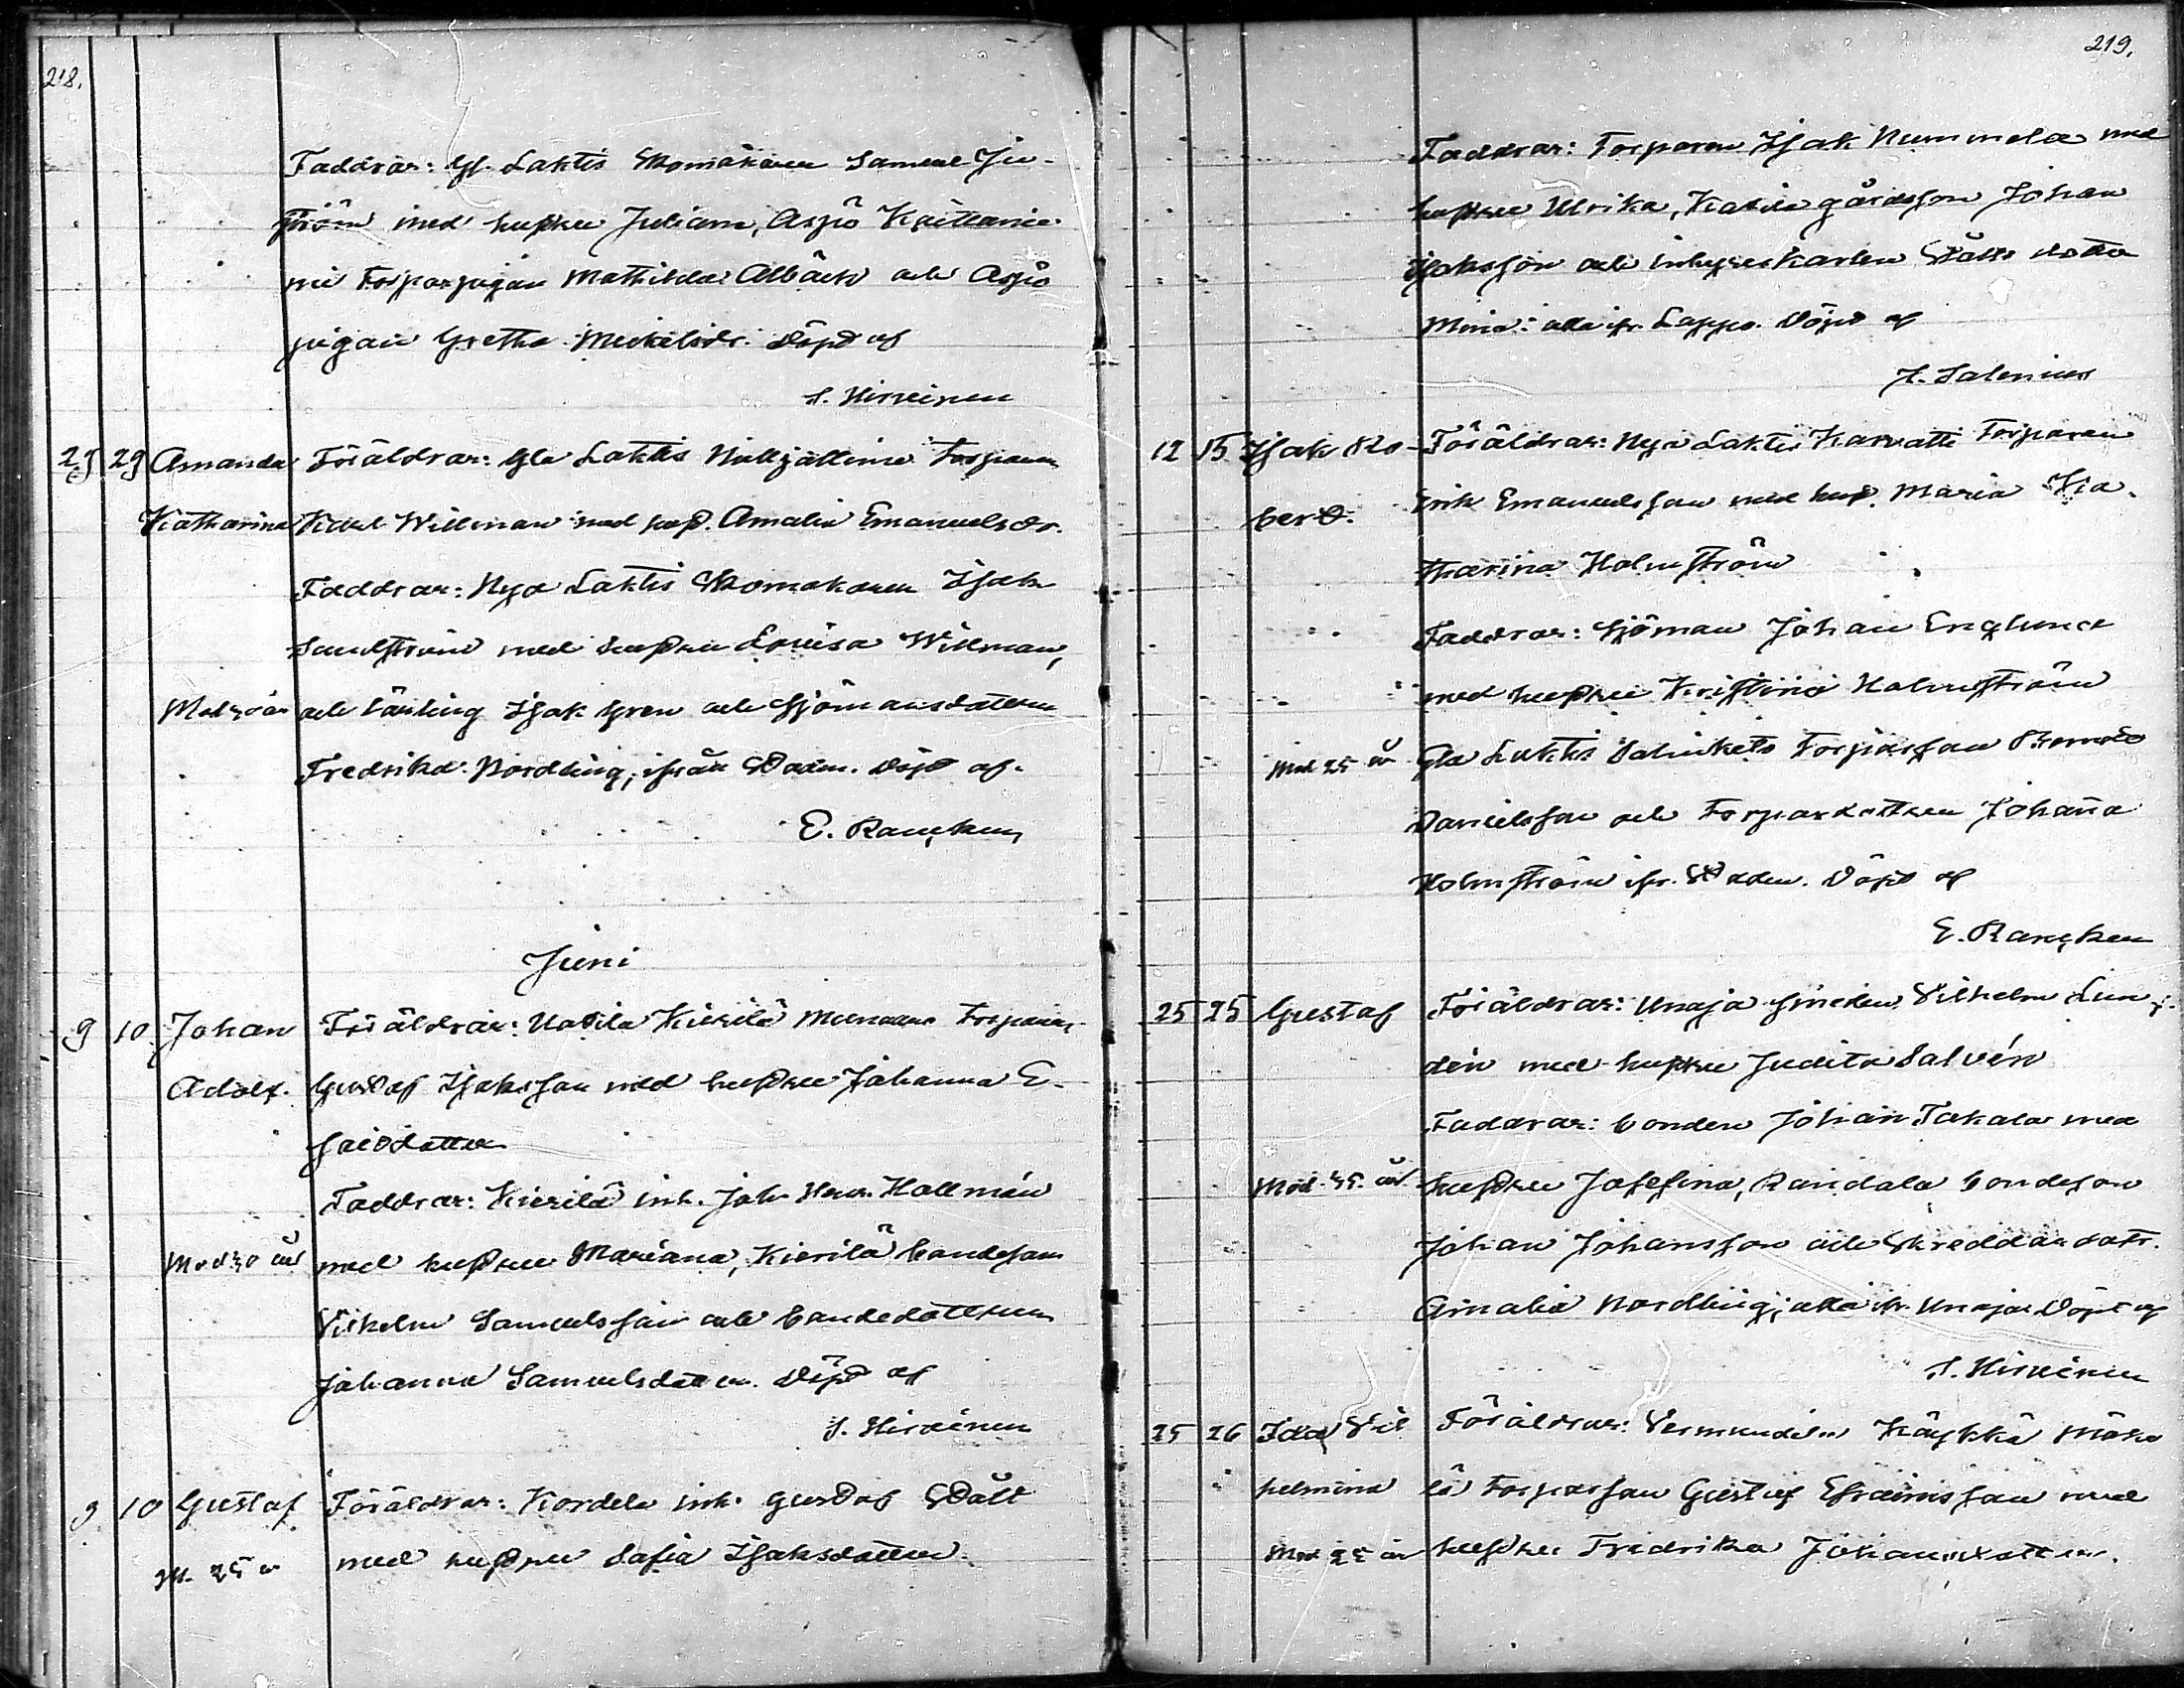 218.
Faddrar: Gl. Laktis Skomakaren Samuel
ström med hustru Juliana, Aspö
Torparpigan Mathilda Albäck och Aspö
pigan Gretha Mickelsdr. Döpt af
S. Hirveinen
25 29 Amanda Föräldrar: Gla Laktis Torparen
Katharina Karl Willman med hust. Amalia Emanuelsdr.
Faddrar: Nya Laktis Skomakaren Isak
Sundström med hustru Lovisa Willman,
Mod. år och Isak Gren och Sjömansdottren
Fredrika Nordling, ifrån Staden. Döpt af
E. Rancken
Juni
9 10 Johan Föräldrar: Kierilä Torparen
Adolf. Gustaf Isaksson med hustru Johanna E-
saidotter
Faddrar: Kierilä inh. Joh. Henr. Hallmén
Mod 30 år med hustru Mariana, Kierilä bondeson
Vilhelm Samuelsson och bondedottren
Johanna Samuelsdotter. Döpt af
S. Hirveinen
9 10 Gustaf Föräldrar: Kordela inh. Gustaf Stålt
M. 25 år med hustru Sofia Isaksdotter.
219.
Faddrar: Torparen Isak Nummela med
hustru Ulrika, gårdsson Johan
Isaksson och inhyseskarlen dotter
Mina: alla ifr. Lappo. Döpt af
J. Salenius
12 15 Isak Ro- Föräldrar: Nya Laktis Karvatti Torparen
bert. Erik Emanuelsson med hust. Maria Ka-
tharina Holmström
Faddrar: Sjöman Johan Englund
med hustru Kristina Holmström
Mod 25 år Gla Laktis Torparson
Danielsson och Torpardottren Johanna
Holmström ifr. Staden. Döpt af
E. Rancken
25 25 Gustaf Föräldrar: Unaja smeden Vilhelm Lin-
dén med hustru Judita Salvén
Faddrar: bonden Johan Takala med
Mod. år hustru Josefina, bondeson
Johan Johansson och Skreddaredotr.
Amalia Nordling; alla ifr. Unaja. Döpt af
S. Hirveinen
25 26 Ida Vil Föräldrar: Vermundila Käykkä Mäke
helmina lä Torparson Gustaf Efraimsson med
Mod 25 år hustru Fredrika Johansdotter.